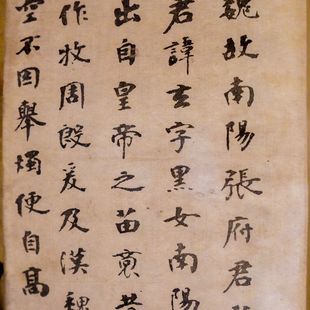 魏故南陽張府君
君諱玄字黑女南陽
出自皇帝之苗裔昔
作牧周殷爰及漢魏
空不因舉燭便自高